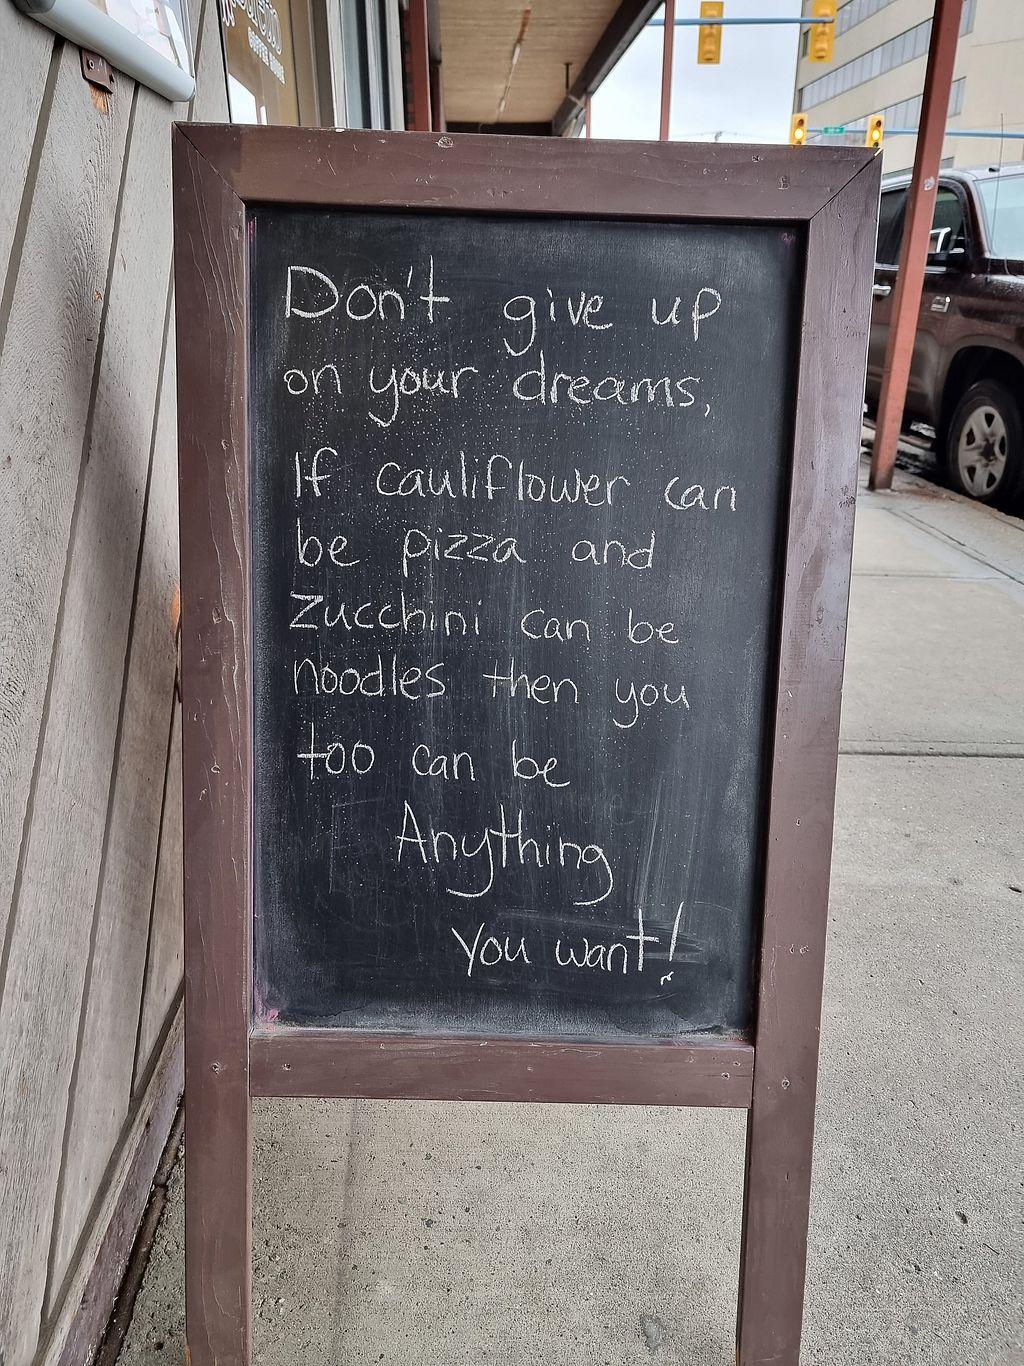 Don't give up
on your dreams,
If cauliflower can
be pizza and
Zucchini can be
noodles then you
too can be
Anything
You want!